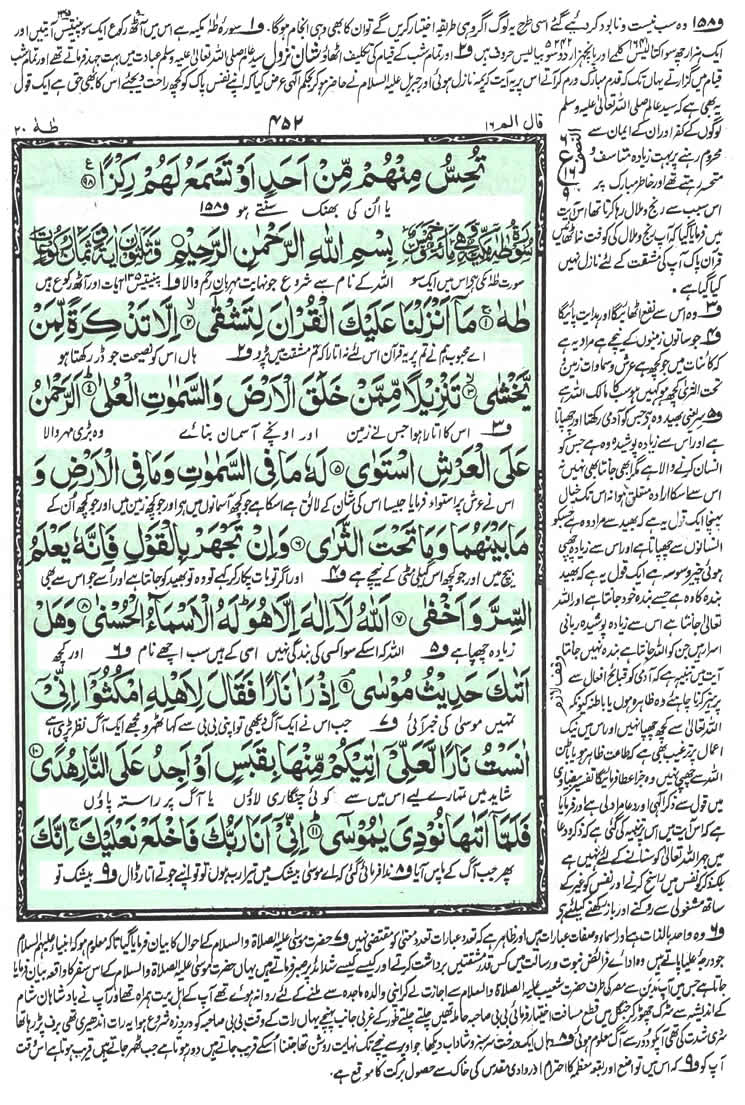 و۱۵۸ وہ سب نیست و نابود کر دیئے گئے اسی طرح یہ لوگ اگر وہی طریقہ اختیار کریں گے تو ان کا بھی وہی انجام ہوگا۔ و۱ سورۂ طٰہٰ مکیہ ہے اس میں آٹھ رکوع ایک سو پینتیس آیتیں اور
ایک ہزار چھ سو اکتالیس کلمے اور پانچ ہزار دو سو بیالیس حروف ہیں و۲ اور تمام شب کے قیام کی تکلیف اٹھاؤ شان نزول سید عالم صلی اللہ تعالیٰ علیہ وسلم عبادت میں بہت جہد فرماتے تھے اور تمام شب
قیام میں گزارتے یہاں تک کہ قدم مبارک ورم کر آتے اس پر یہ آیت کریمہ نازل ہوئی اور جبریل علیہ السلام نے حاضر ہو کر بحکم الٰہی عرض کیا کہ اپنے نفس پاک کو کچھ راحت دیجئے اس کا بھی حق ہے ایک قول
یہ بھی ہے کہ سید عالم صلی اللہ تعالیٰ علیہ وسلم
لوگوں کے کفر اور ان کے ایمان سے
محروم رہنے پر بہت زیادہ متاسف و
متحسر رہتے تھے اور خاطر مبارک پر
اس سبب سے رنج و ملال رہا کرتا تھا اس آیت
میں فرمایا گیا کہ آپ رنج و ملال کی کوفت نہ اٹھائیں
قرآن پاک آپ کی مشقت کے لئے نازل نہیں
کیا گیا ہے۔
و۳ وہ اس سے نفع اٹھائیگا اور ہدایت پائیگا
و۴ جو ساتوں زمینوں کے نیچے ہے مراد یہ ہے
کہ کائنات میں جو کچھ ہے عرش و سماوات زمین و
تحت الثریٰ کچھ ہو کہیں ہو سب کا مالک اللہ ہے
و۵ سر یعنی بھید وہ ہے جس کو آدمی رکھتا اور چھپاتا
ہے اور اس سے زیادہ پوشیدہ وہ ہے جس کو
انسان کرنے والا ہے مگر ابھی جانتا بھی نہیں نہ
اس سے اسکا ارادہ متعلق ہوا نہ اس تک خیال
پہنچا ایک قول یہ ہے کہ بھید سے مراد وہ ہے جسکو
انسانوں سے چھپاتا ہے اور اس سے زیادہ چھپی
ہوئی چیز وسوسہ ہے ایک قول یہ ہے کہ بھید
بندہ کا وہ ہے جسے بندہ خود جانتا ہے اور اللہ
تعالیٰ جانتا ہے اس سے زیادہ پوشیدہ ربانی
اسرار ہیں جن کو اللہ جانتا ہے بندہ نہیں جانتا
آیت میں تنبیہ ہے کہ آدمی کو قبائح افعال سے
پرہیز کرنا چاہئے وہ ظاہرہ ہوں یا باطنہ کیونکہ
اللہ تعالیٰ سے کچھ چھپا نہیں اور اس میں نیک
اعمال پر ترغیب بھی ہے کہ طاعت ظاہر ہو یا باطن
اللہ سے چھپی نہیں وہ جزا عطا فرمائیگا تفسیر بیضاوی
میں قول سے ذکر الٰہی اور دعا مراد لی ہے اور فرمایا
ہے کہ اس آیت میں اس پر تنبیہ کی گئی ہے کہ ذکر و دعا
میں جہر اللہ تعالیٰ کو سنانے کے لئے نہیں ہے
بلکہ ذکر کو نفس میں راسخ کرنے اور نفس کو غیر کے
ساتھ مشغولی سے روکنے اور باز رکھنے کیلئے ہے
قال الم ۱۶
۴۵۲
طٰهٰ ۲۰
تُحِسُّ مِنْهُمْ مِّنْ اَحَدٍ اَوْ تَسْمَعُ لَهُمْ رِكْزًا ۹۸
یا ان کی بھنک سنتے ہو و۱۵۸
بِسْمِ اللهِ الرَّحْمٰنِ الرَّحِیْمِ
سورت طٰہٰ مکی ہے اس میں ایک سو اللہ کے نام سے شروع جو نہایت مہربان رحم والا و۱ پینتیس ۱۳۵ آیات اور آٹھ رکوع ہیں
طٰهٰ ۱ مَاۤ اَنْزَلْنَا عَلَیْكَ الْقُرْاٰنَ لِتَشْقٰۤى ۲ اِلَّا تَذْكِرَةً لِّمَنْ
اے محبوب ہم نے تم پر یہ قرآن اس لئے نہ اتارا کہ تم مشقت میں پڑو و۲ ہاں اس کو نصیحت جو ڈر رکھتا ہو
یَّخْشٰى ۳ تَنْزِیْلًا مِّمَّنْ خَلَقَ الْاَرْضَ وَ السَّمٰوٰتِ الْعُلٰى ۴ اَلرَّحْمٰنُ
و۳ اس کا اتارا ہوا جس نے زمین اور اونچے آسمان بنائے وہ بڑی مہر والا
عَلَى الْعَرْشِ اسْتَوٰى ۵ لَهٗ مَا فِی السَّمٰوٰتِ وَ مَا فِی الْاَرْضِ وَ
اس نے عرش پر استواء فرمایا جیسا اس کی شان کے لائق ہے اسکا ہے جو کچھ آسمانوں میں ہے اور جو کچھ زمین میں اور جو کچھ ان کے
مَا بَیْنَهُمَا وَ مَا تَحْتَ الثَّرٰى ۶ وَ اِنْ تَجْهَرْ بِالْقَوْلِ فَاِنَّهٗ یَعْلَمُ
بیچ میں اور جو کچھ اس گیلی مٹی کے نیچے ہے و۴ اور اگر تو بات پکار کر کہے تو وہ تو بھید کو جانتا ہے اور اسے جو اس سے بھی
السِّرَّ وَ اَخْفٰى ۷ اَللهُ لَاۤ اِلٰهَ اِلَّا هُوَ لَهُ الْاَسْمَآءُ الْحُسْنٰى ۸ وَ هَلْ
زیادہ چھپا ہے و۵ اللہ کہ اسکے سوا کسی کی بندگی نہیں اسی کے ہیں سب اچھے نام و۶ اور کچھ
اَتٰىكَ حَدِیْثُ مُوْسٰى ۹ اِذْ رَاٰ نَارًا فَقَالَ لِاَهْلِهِ امْكُثُوْۤا اِنِّیْۤ
تمہیں موسیٰ کی خبر آئی و۷ جب اس نے ایک آگ دیکھی تو اپنی بی بی سے کہا ٹھہرو مجھے ایک آگ نظر پڑی ہے
اٰنَسْتُ نَارًا لَّعَلِّیْۤ اٰتِیْكُمْ مِّنْهَا بِقَبَسٍ اَوْ اَجِدُ عَلَى النَّارِ هُدًى ۱۰
شاید میں تمہارے لئے اس میں سے کوئی چنگاری لاؤں یا آگ پر راستہ پاؤں
فَلَمَّاۤ اَتٰىهَا نُوْدِیَ یٰمُوْسٰى ۱۱ اِنِّیْۤ اَنَا رَبُّكَ فَاخْلَعْ نَعْلَیْكَ اِنَّكَ
پھر جب آگ کے پاس آیا و۸ ندا فرمائی گئی کہ اے موسیٰ بیشک میں تیرا رب ہوں تو تو اپنے جوتے اتار ڈال و۹ بیشک تو
و۶ وہ واحد بالذات ہے اور اسماء و صفات عبارات ہیں اور ظاہر ہے کہ تعدد عبارات تعدد معنی کو مقتضی نہیں و۷ حضرت موسیٰ علیہ الصلاۃ والسلام کے احوال کا بیان فرمایا گیا تاکہ معلوم ہو کہ انبیاء علیہم السلام
جو درجہ علیا پاتے ہیں وہ ادائے فرائض نبوت و رسالت میں کس قدر مشقتیں برداشت کرتے اور کیسے کیسے شدائد پر صبر فرماتے ہیں یہاں حضرت موسیٰ علیہ الصلاۃ والسلام کے اس سفر کا واقعہ بیان فرمایا
جاتا ہے جس میں آپ مدین سے مصر کی طرف حضرت شعیب علیہ الصلاۃ والسلام سے اجازت لے کر اپنی والدہ ماجدہ سے ملنے کے لئے روانہ ہوئے تھے آپ کے اہل بیت ہمراہ تھے اور آپ نے بادشاہان شام
کے اندیشہ سے سڑک چھوڑ کر جنگل میں قطع مسافت اختیار فرمائی بی بی صاحبہ حاملہ تھیں چلتے چلتے طور کے غربی جانب پہنچے یہاں رات کے وقت بی بی صاحبہ کو درد زہ شروع ہوا یہ رات اندھیری تھی برف پڑ رہا تھا
سردی شدت کی تھی آپ کو دور سے آگ معلوم ہوئی و۸ وہاں ایک درخت سرسبز و شاداب دیکھا جو اوپر سے نیچے تک نہایت روشن تھا جتنا اسکے قریب جاتے ہیں دور ہوتا ہے جب ٹھہر جاتے ہیں قریب ہوتا ہے اس وقت
آپ کو و۹ کہ اس میں تواضع اور بقعہ معظمہ کا احترام اور وادی مقدس کی خاک سے حصول برکت کا موقع ہے۔